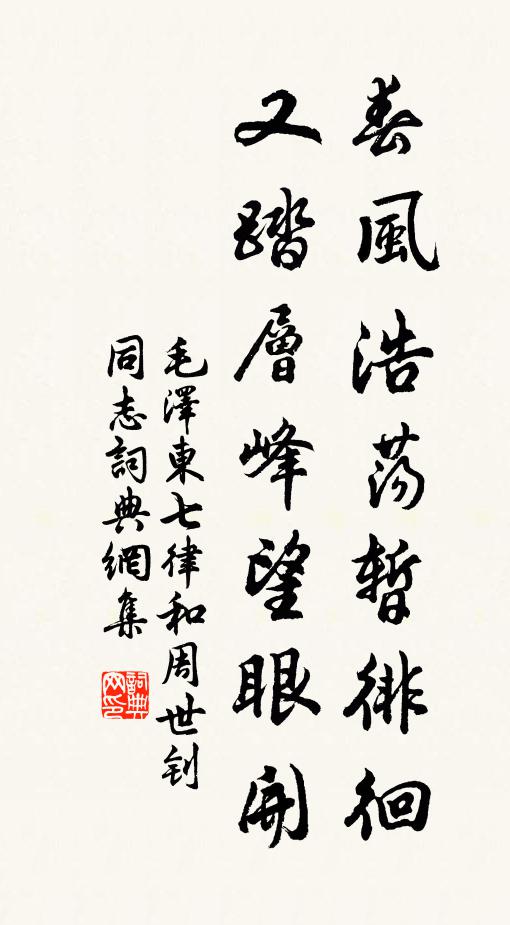 春風浩荡暫徘徊
又踏層峰望眼開
毛澤東七律和周世钊
同志詞典網集
詞典网印